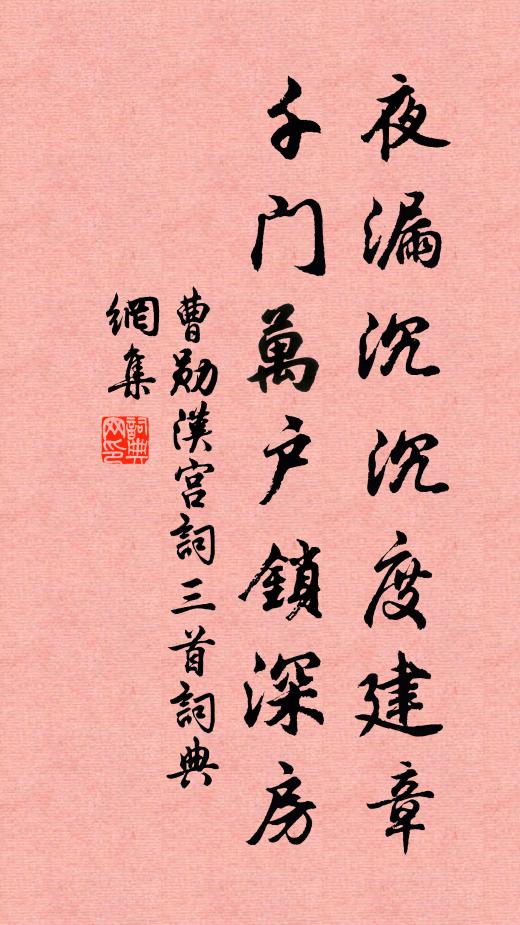 夜漏沉沉度建章
千門萬戶鎖深房
曹勛漢宮詞三首詞典
網集
詞典网印